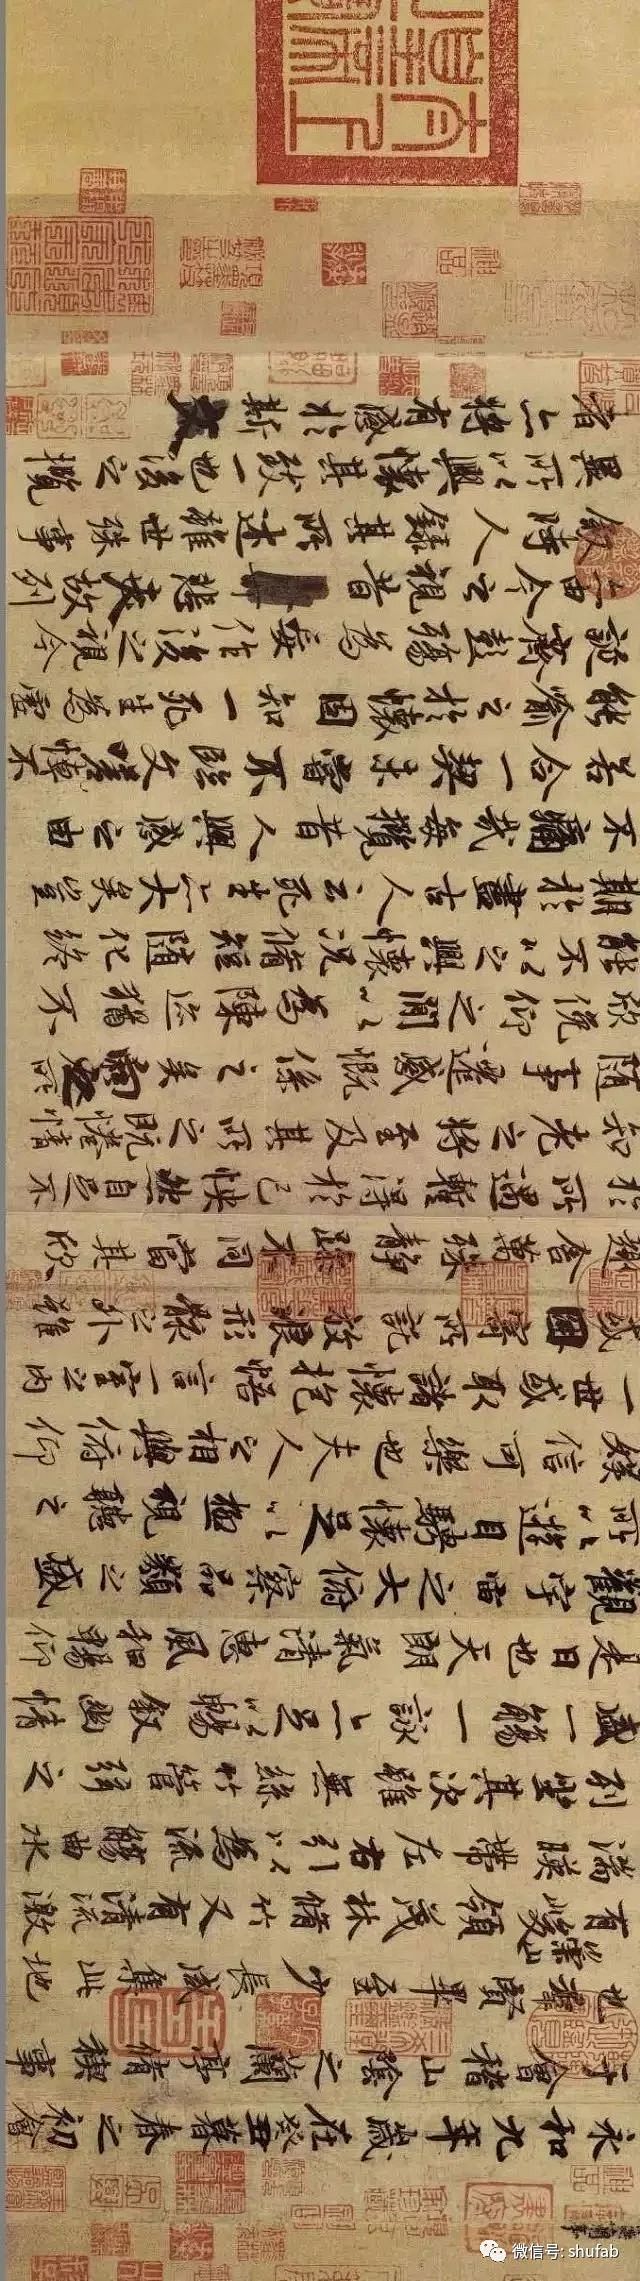 永和九年歲在癸丑暮春之初會
于會稽山陰之蘭亭脩稧事
也羣賢畢至少長咸集此地
有崇山峻領茂林脩竹又有清流激
湍暎帶左右引以為流觴曲水
列坐其次雖無絲竹管弦之
盛一觴一詠亦足以暢敘幽情
是日也天朗氣清惠風和暢仰
觀宇宙之大俯察品類之盛
所以遊目騁懷足以極視聽之
娛信可樂也夫人之相與俯仰
一世或取諸懷抱悟言一室之內
或因寄所託放浪形骸之外雖
趣舍萬殊靜躁不同當其欣
於所遇蹔得於己快然自足不
知老之將至及其所之既惓情
隨事遷感慨係之矣向之所
欣俛仰之閒以為陳迹猶不
能不以之興懷況脩短隨化終
期於盡古人云死生亦大矣豈
不痛哉每攬昔人興感之由
若合一契未嘗不臨文嗟悼不
能喻之於懷固知一死生為虛
誕齊彭殤為妄作後之視今
亦由今之視昔悲夫故列
敘時人錄其所述雖世殊事
異所以興懷其致一也後之攬
者亦將有感於斯文
微信号: shufab